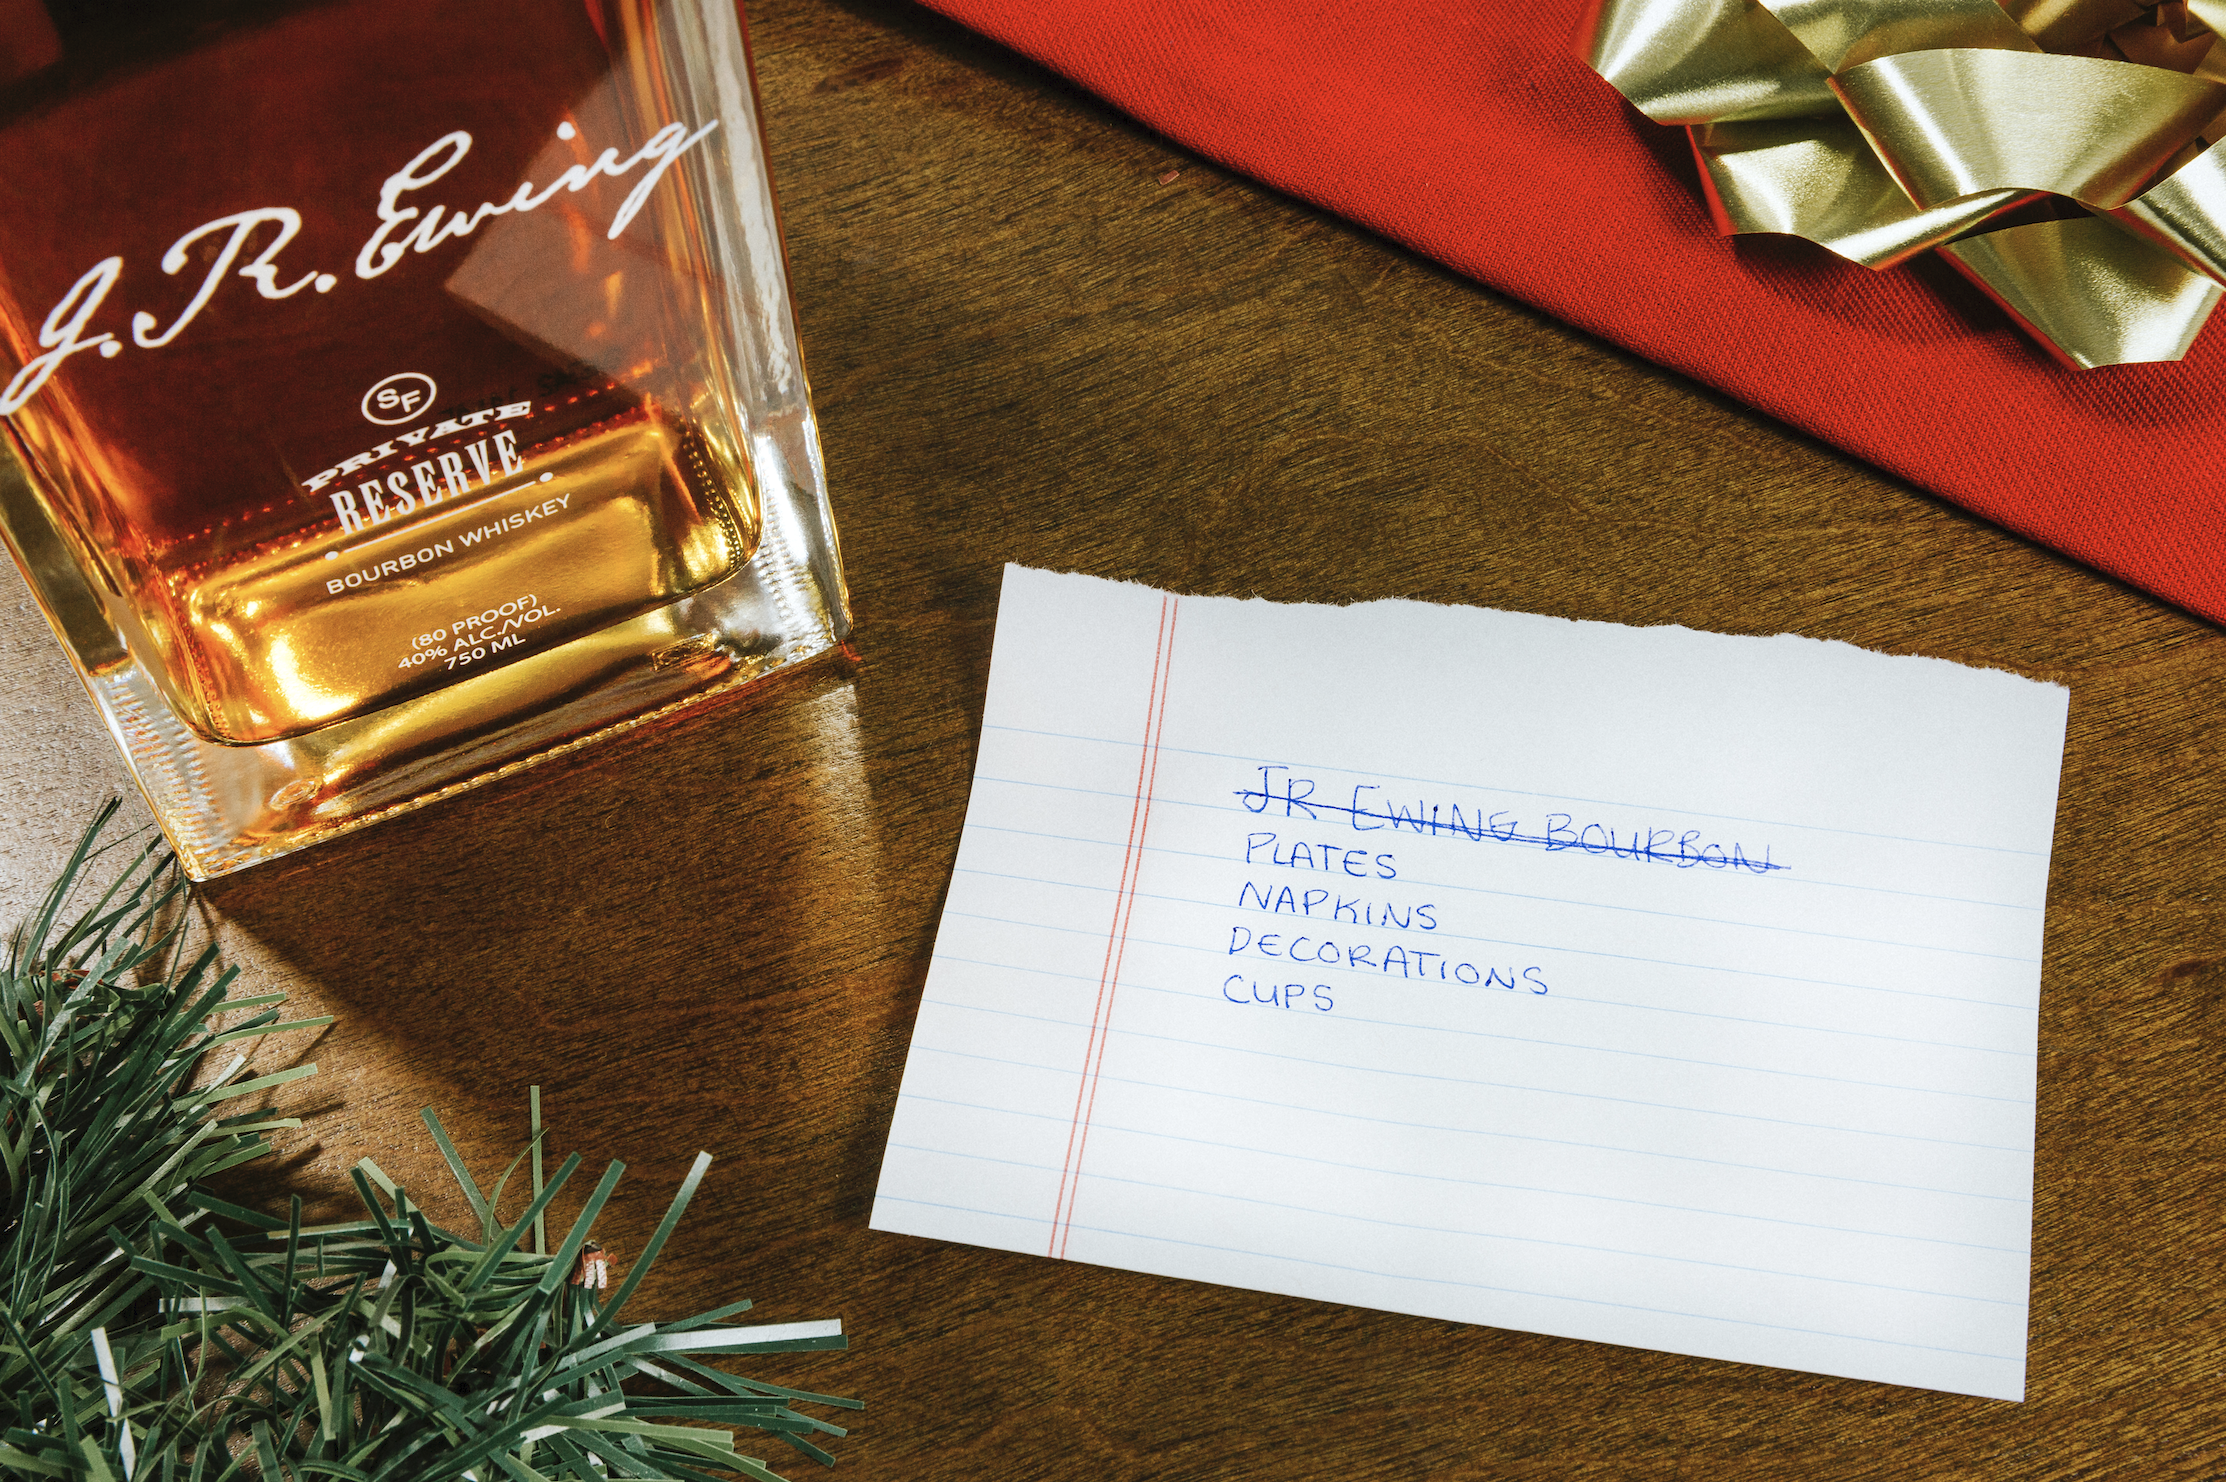 J.R. Ewing
SF
PRIVATE
RESERVE
BOURBON WHISKEY
(80 PROOF)
40% ALC./VOL.
750 ML
JR EWING BOURBON
PLATES
NAPKINS
DECORATIONS
CUPS